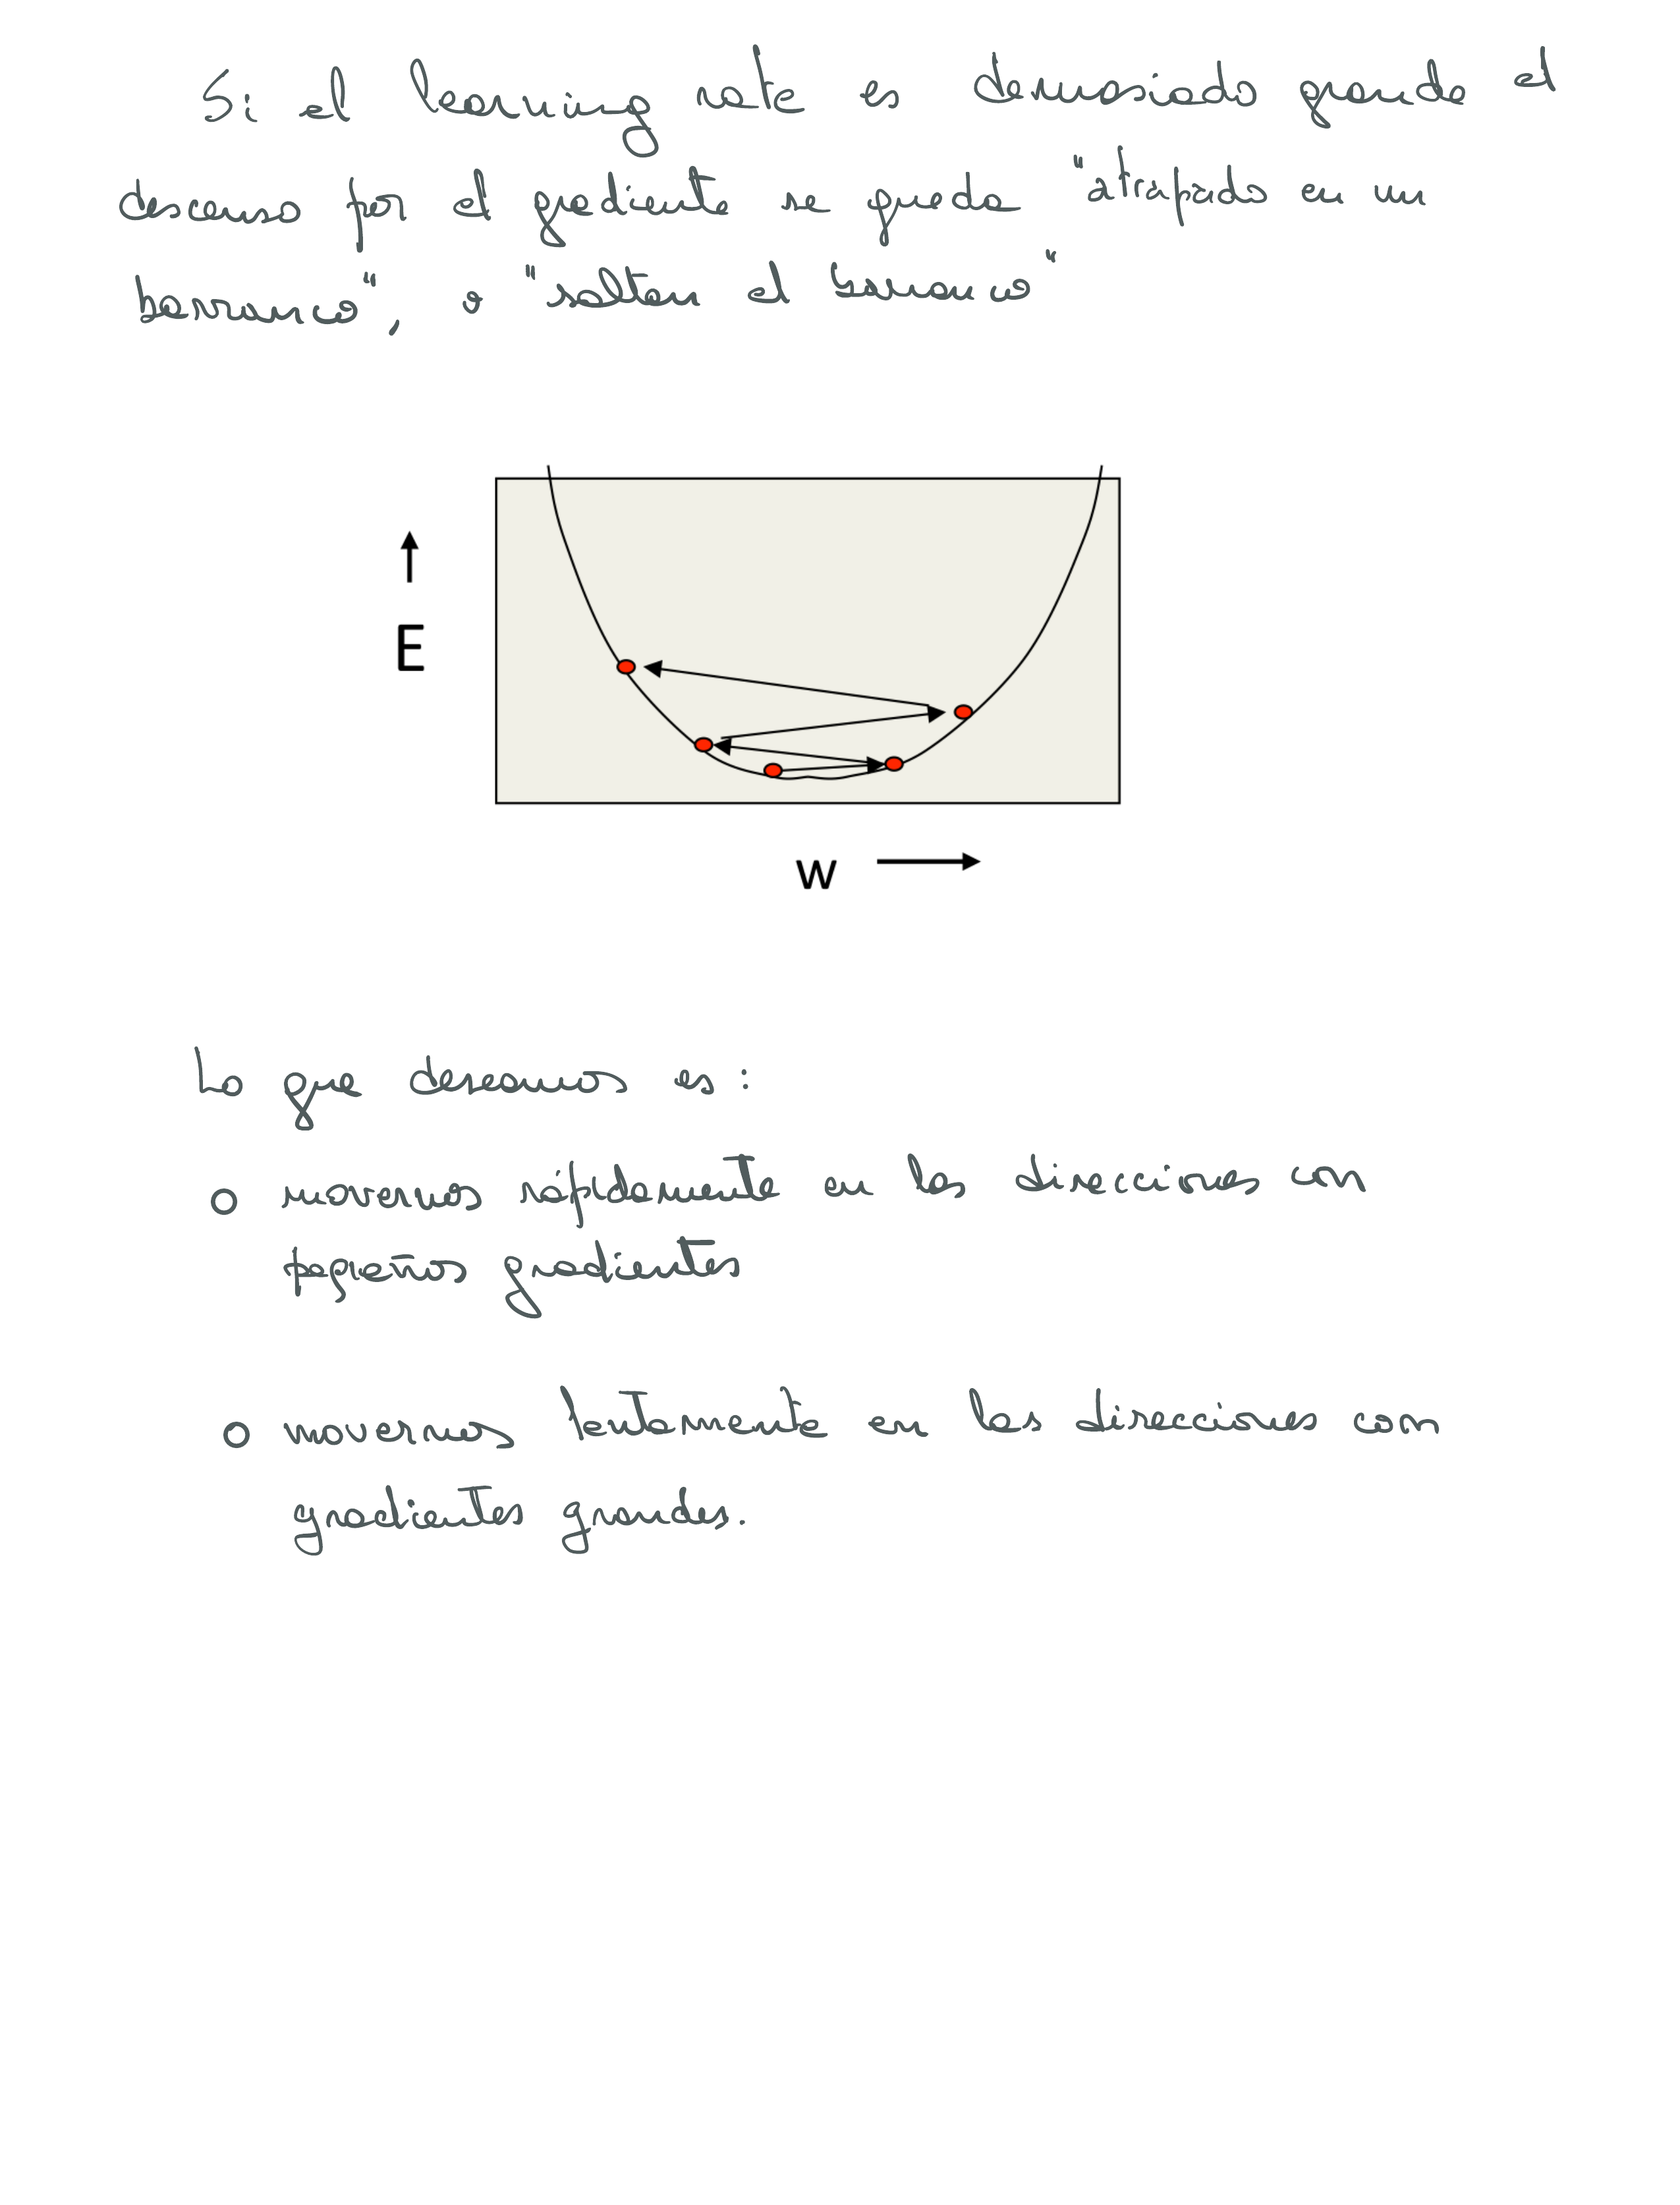 Si el learning rate es demasiado grande el
descenso por el gradiente se queda "atrapado en un
barranco", o "saltan el barranco"
E
w
Lo que deseamos es:
o movernos rápidamente en las direcciones con
pequeños gradientes
o movernos lentamente en las direcciones con
gradientes grandes.